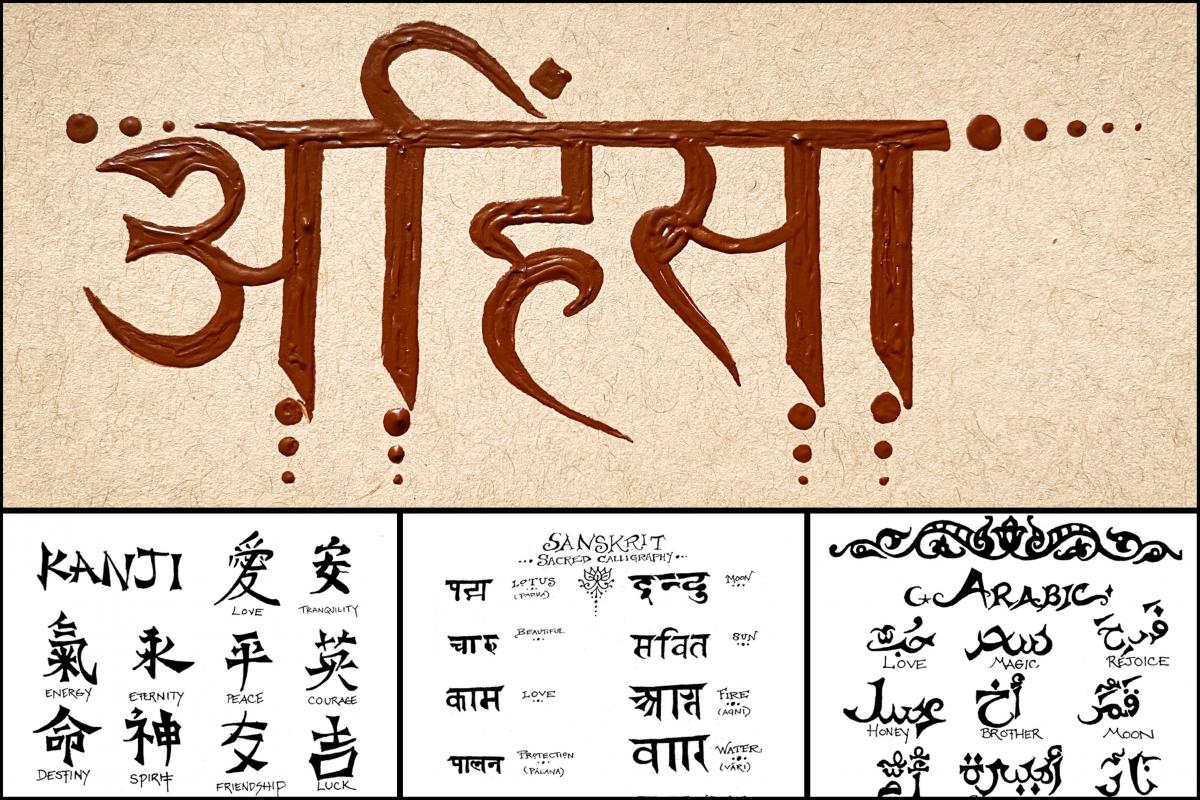 अहिंसा
KANJI 愛 安
LOVE TRANQUILITY
氣 永 平 英
ENERGY ETERNITY PEACE COURAGE
命 神 友 吉
DESTINY SPIRIT FRIENDSHIP LUCK
SANSKRIT
SACRED CALLIGRAPHY
पद्म LOTUS इन्दु MOON
(PADMA)
चारु BEAUTIFUL सवित SUN
काम LOVE FIRE
(AGNI)
पालन PROTECTION WATER
(PĀLANA) (VĀRI)
ARABIC
حُبّ سحر فرح
LOVE MAGIC REJOICE
عسل أخ قمر
HONEY BROTHER MOON
أميرة نار